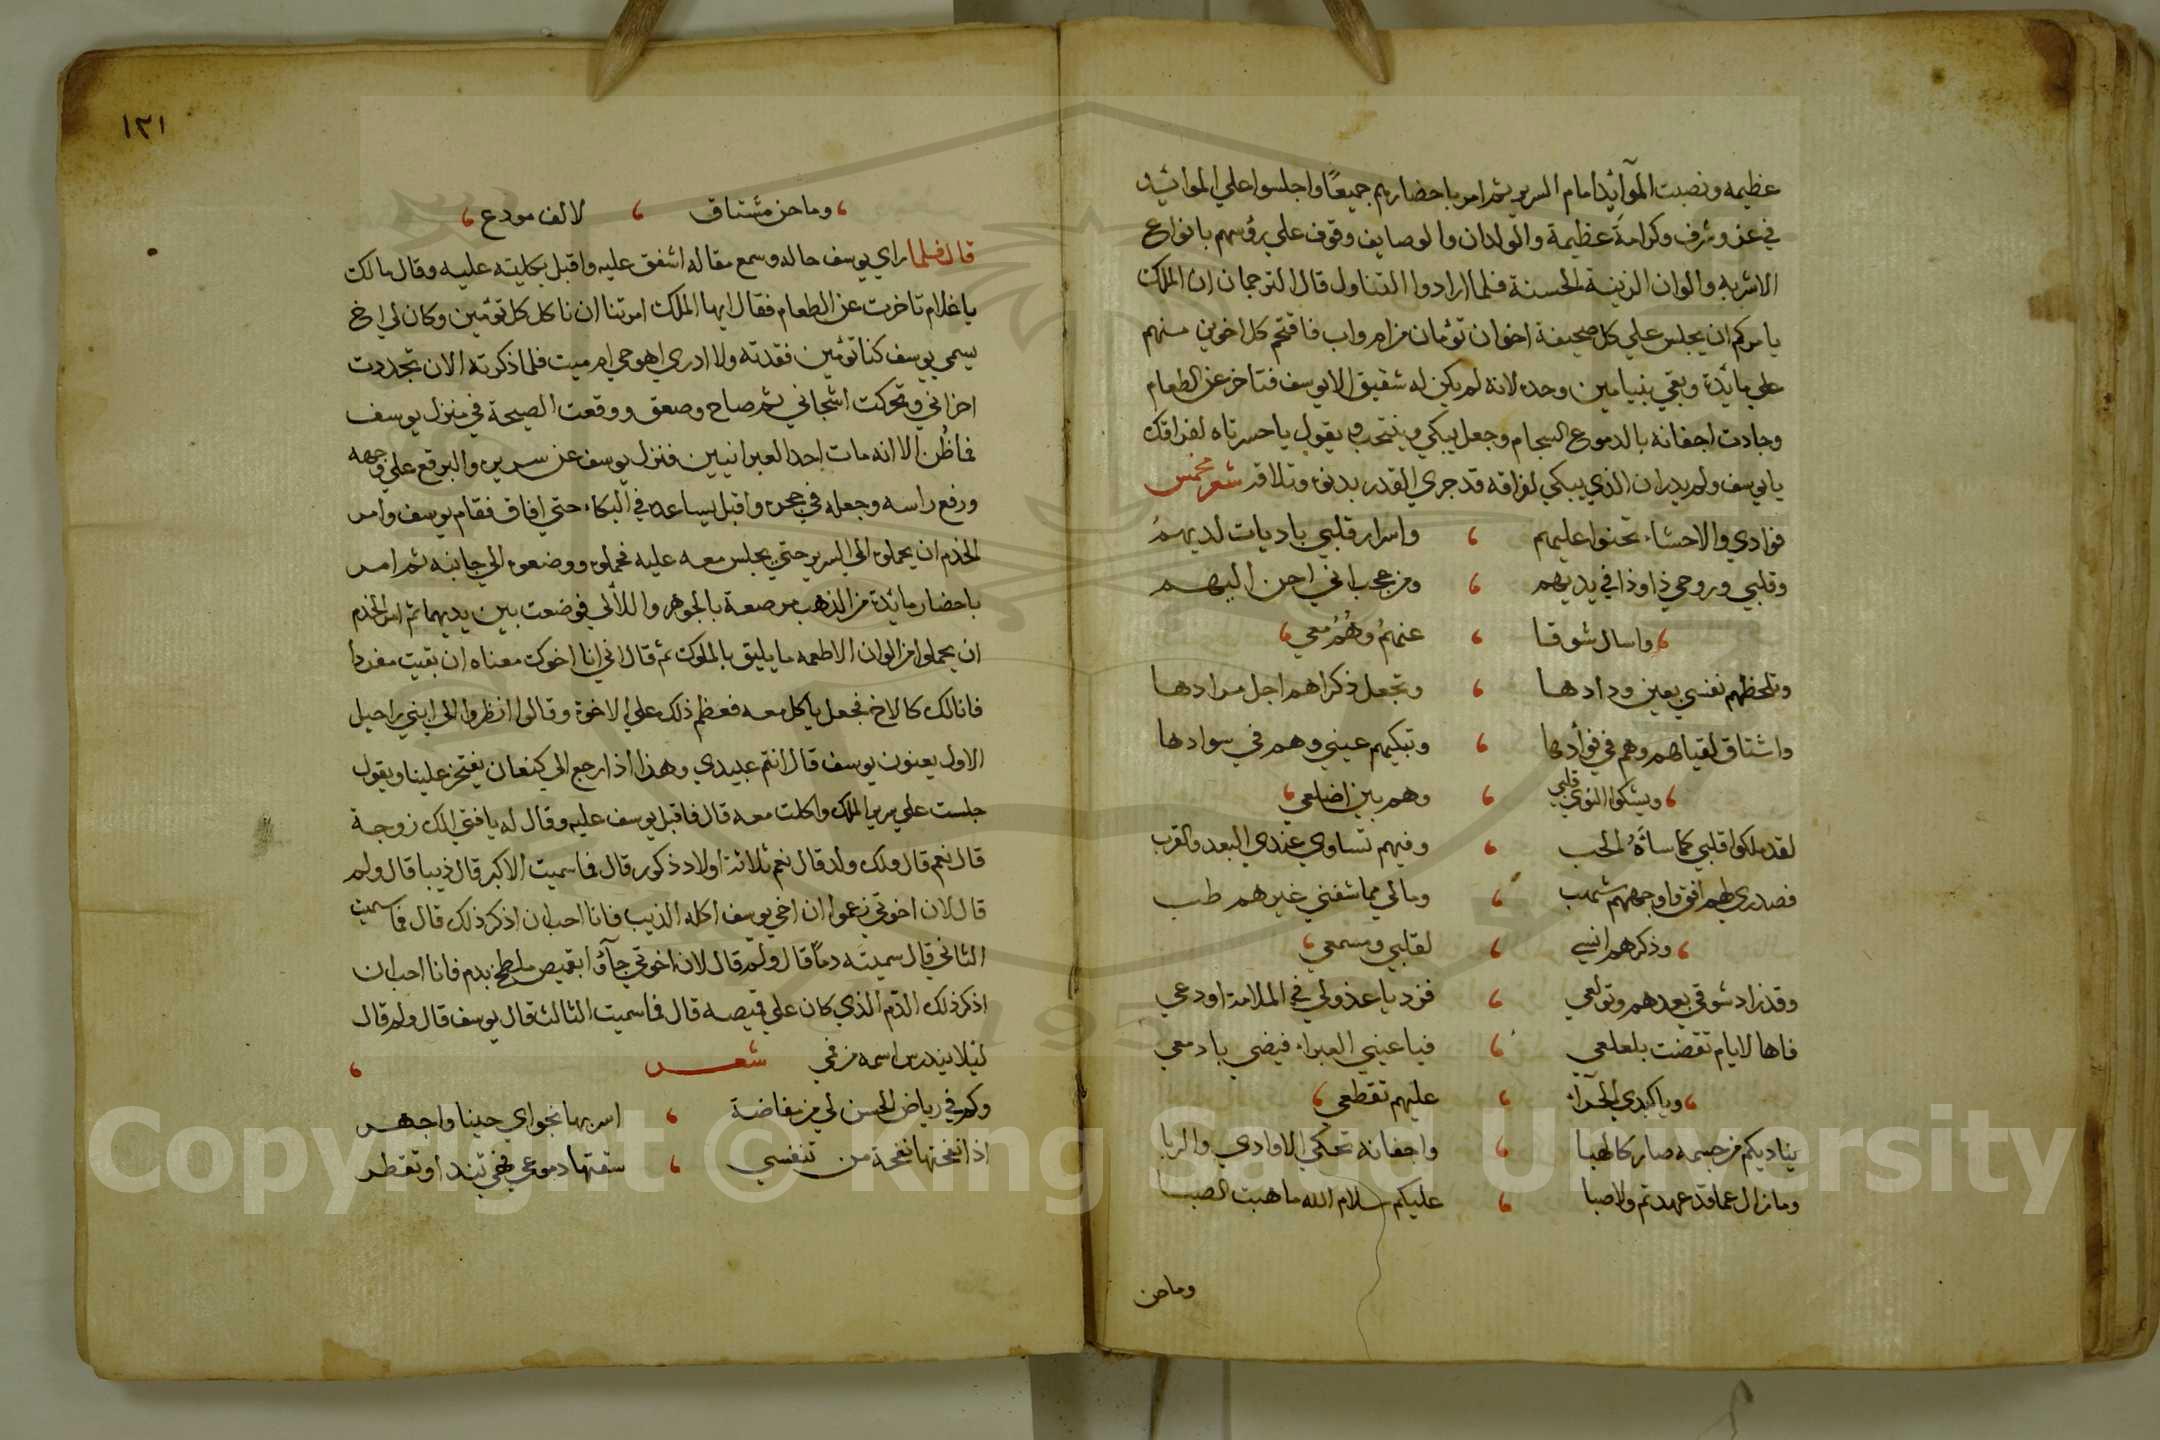 عظيمه ونصبت الموآئيد امام السرير ثم امر باحضارهم جميعًا واجلسوا علي الموائيد
في عز وشرف وكرامة عظيمة والولدان والوصايف وقوف علي رؤسهم بانواع
الاشربه والوان الزينة الحسنة فلما ارادوا التناول قال الترجمان ان الملك
يامركم ان يجلس علي كل صحيفة اخوان توئمان من ام واب فاقتم كل اخوين منهم
علي مائدة وبقي بنيامين وحده لانه لم يكن له شقيق الا يوسف فتاخر عن الطعام
وجادت اجفانه بالدموع السجام وجعل يبكي وينتحب ويقول يا حسرتاه لفراقك
يا يوسف ولم يدر ان الذي يبكي لفراقه قد جري القدر بدنوه وتلاقه شعر مخمس
فوادي والاحشاء تحنوا عليهم ، واسرار قلبي باديات لديهمُ
وقلبي وروحي ذا وذا في يديهم ، ومن عجب اني احن اليهم
، واسال شوقا ، عنهمُ وهُمُ معي ،
وتلحظهم نفسي بعين ودادها ، وتجعل ذكراهم اجل مرادها
واشتاق لقياهم وهم في فوأدها ، وتبكيهم عيني وهم في سوادها
، ويشكوا النوي قلبي ، وهم بين اضلعي ،
لقد ملكوا قلبي كما ساءَهُ الحب ، وفيهم تساوي عندي البعد والقرب
فصدري لهم افق واوجههم شهب ، ومالي مما شفني غيرهم طب
، وذكرهم انسي ، لقلبي ومسمعي ،
وقد زاد شوقي بعدهم وتولعي ، فزد يا عذولي في الملامة اودعي
فاها لايام تقضت بلعلعي ، فيا عيني العبراء فيضي بادمعي
، ويا كبدي الحرآء ، عليهم تقطعي ،
يناديكم من جسمه صار كالهبا ، واجفانه تحكي الاوادي والربا
وما زال عما قد عهدتم ولا صبا ، عليكم سلام الله ما هبت الصبا
وما حن
١٢١
، وما حن مشتاق ، لالف مودع ،
قال فلما راي يوسف حاله وسمع مقاله اشفق عليه واقبل بكليته عليه وقال مالك
يا غلام تاخرت عن الطعام فقال ايها الملك امرتنا ان ناكل كل توئمين وكان لي اخ
يسمي يوسف كنا توئمين فقدته ولا ادري اهو حي ام ميت فلما ذكرته الان تجددت
احزاني وتحركت اشجاني ثم صاح وصعق ووقعت الصيحة في منزل يوسف
فما ظُن الا انه مات احد العبرانيين فنزل يوسف عن سريره والبرقع علي وجهه
ورفع راسه وجعله في حجره واقبل يساعده في البكاء حتي افاق فقام يوسف وامر
الخدم ان يحملوه الي السرير حتي يجلس معه عليه فحملوه ووضعوه الي جانبه ثم امر
باحضار مائدة من الذهب مرصعة بالجوهر واللألي فوضعت بين يديهما ثم امر الخدم
ان يحملوا من الوان الاطعمه ما يليق بالملوك ثم قال اني انا اخوك معناه ان بقيت مفردا
فانا لك كالاخ فجعل ياكل معه فعظم ذلك علي الاخوة وقالوا انظروا الي ابني راحيل
الاول يعنون يوسف قال انتم عبيدي وهذا اذا رجع الي كنعان يفتخر علينا ويقول
جلست علي سرير الملك واكلت معه قال فاقبل يوسف عليه وقال له يا فتي الك زوجة
قال نعم قال ولك ولد قال نعم ثلاثة اولاد ذكور قال فما سميت الاكبر قال ذيبا قال ولم
قال لان اخوتي زعموا ان اخي يوسف اكله الذيب فانا احب ان اذكر ذلك قال فما سميت
الثاني قال سميته دمًا قال ولم قال لان اخوتي جآؤا بقميص ملطخ بدم فانا احب ان
اذكر ذلك الدم الذي كان علي قميصه قال فما سميت الثالث قال يوسف قال ولم قال
ليلا يندرس اسمه من فمي شعر ،
وكم في رياض الحسن لي من مفاضة ، اسر بها نجواي حينا واجهر
اذا نفحتها نفحة من تنفسي ، سقتها دموعي فهي تندا وتقطر